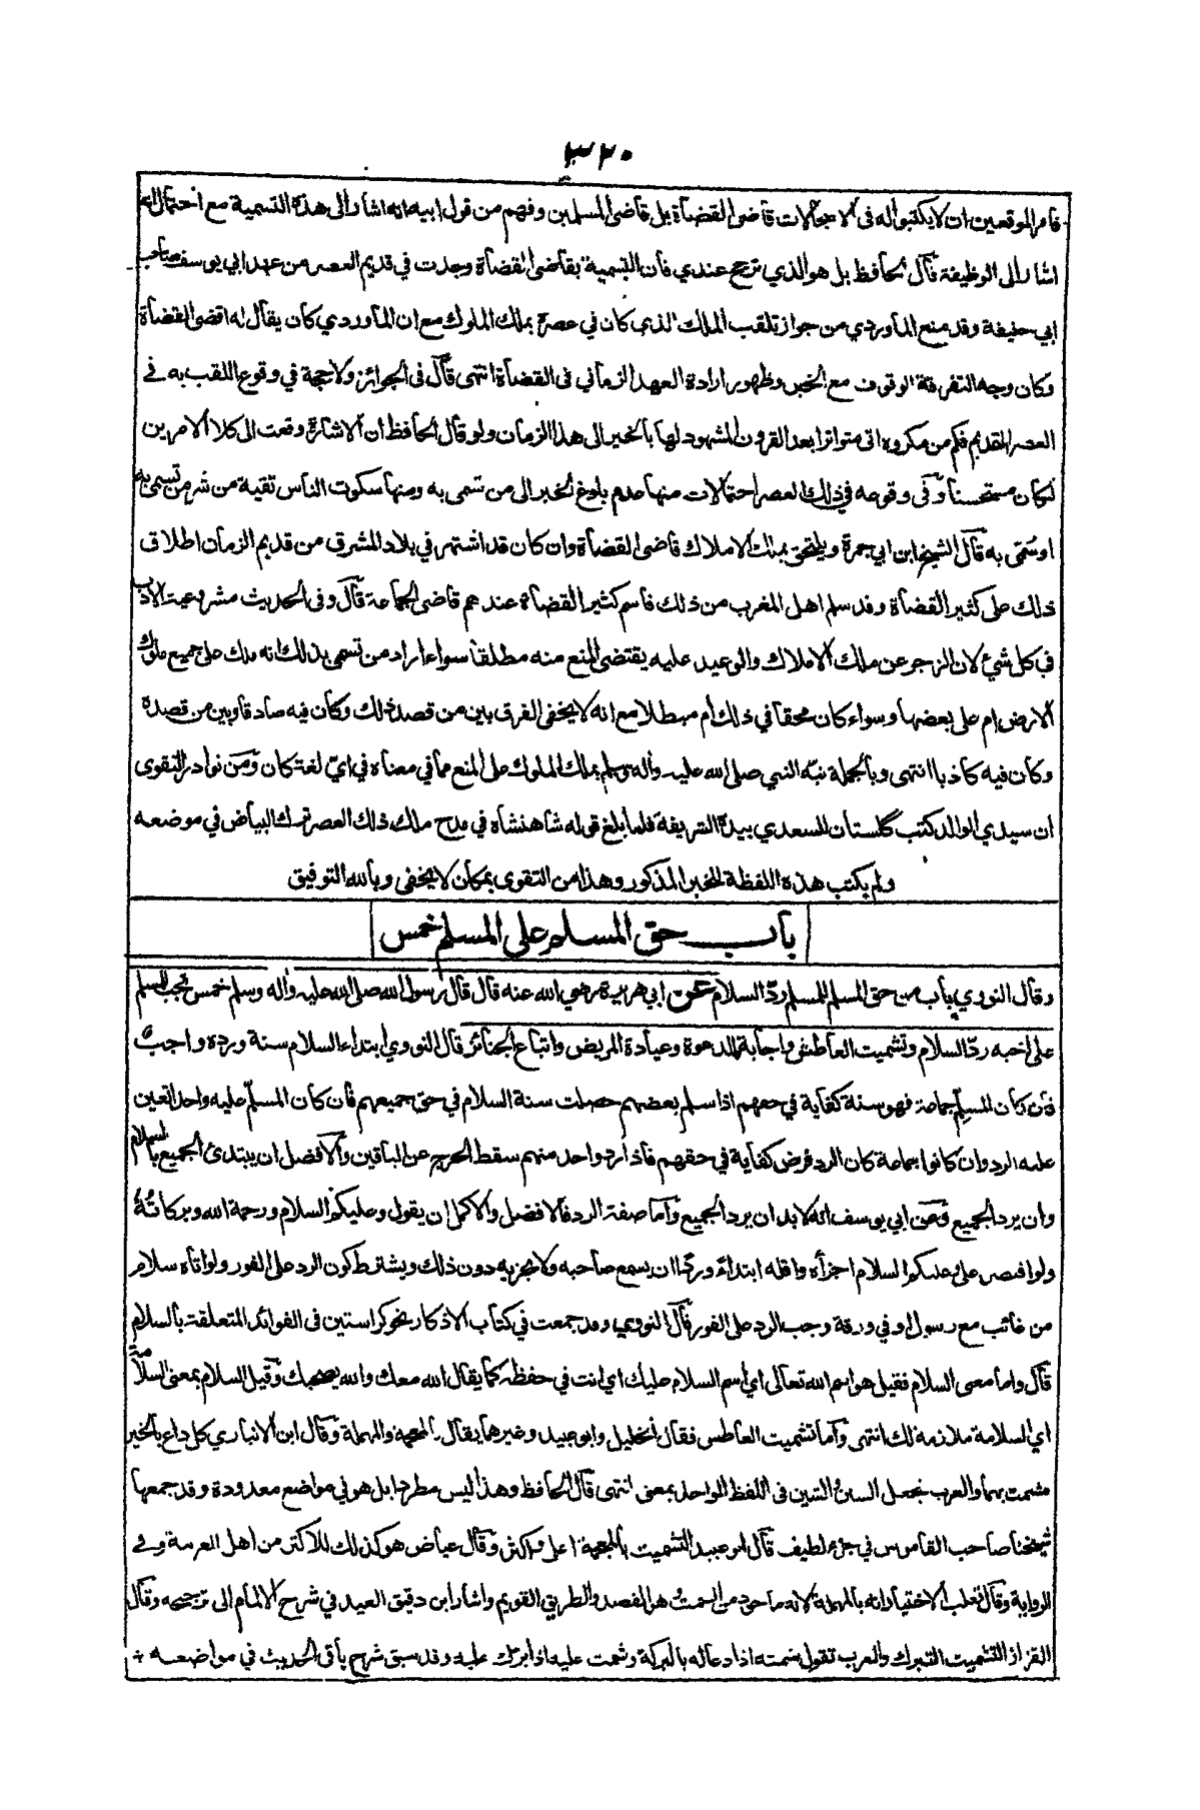 ٣٢٠
فامر الموقعين ان لا يكتبوا له فى الاسجالات قاضى القضاة بل قاضى المسلمين وفهم من قول ابيه انه اشار الى هذه التسمية مع احتمال انه
اشار الى الوظيفة قال الحافظ بل هو الذي ترجح عندي فان التسمية بقاضى القضاة وجدت في قديم العصر من عهد ابي يوسف صاحب
ابي حنيفة وقد منع الماوردي من جواز تلقب الملك الذي كان في عصره بملك الملوك مع ان الماوردي كان يقال له اقضى القضاة
وكان وجه التفرقة الوقوف مع الخبر وظهور ارادة العهد الزماني فى القضاة انتهى قال فى الجوائز ولا حجة في وقوع اللقب به في
العصر القديم فكم من مكروه اتى متواترا بعد القرون المشهود لها بالخير الى هذا الزمان ولو قال الحافظ ان الاشارة وقعت الى كلا الامرين
لكان مستحسنا وفى وقوعه في ذلك العصر احتمالات منها عدم بلوغ الخبر الى من تسمى به ومنها سكوت الناس تقية من شر من تسمى به
او سُمّى به قال الشيخ ابن ابي جمرة ويلتحق بملك الاملاك قاضى القضاة وان كان قد اشتهر في بلاد المشرق من قديم الزمان اطلاق
ذلك على كبير القضاة وقد سلم اهل المغرب من ذلك فاسم كبير القضاة عندهم قاضى الجماعة قال وفى الحديث مشروعية الادب
في كل شيئ لان الزجر عن ملك الاملاك والوعيد عليه يقتضى المنع منه مطلقا سواء اراد من تسمى بذلك انه ملك على جميع ملوك
الارض ام على بعضها وسواء كان محقا في ذلك ام مبطلا مع انه لا يخفى الفرق بين من قصد ذلك وكان فيه صادقا وبين من قصده
وكان فيه كاذبا انتهى وبالجملة نبّه النبي صلى الله عليه وآله وسلم بملك الملوك على المنع مما في معناه في ايّ لغة كان ومن نوادر التقوى
ان سيدي الوالد كتب گلستان للسعدي بيده الشريفة فلما بلغ قوله شاهنشاه في مدح ملك ذلك العصر ترك البياض في موضعه
ولم يكتب هذه اللفظة للخبر المذكور وهذا من التقوى بمكان لا يخفى وبالله التوفيق
باب حق المسلم على المسلم خمس
وقال النووي باب من حق المسلم للمسلم ردّ السلام عن ابي هريرة رضي الله عنه قال قال رسول الله صلى الله عليه وآله وسلم خمس تجب للمسلم
على اخيه ردّ السلام وتشميت العاطس واجابة الدعوة وعيادة المريض واتباع الجنائز قال النووي ابتداء السلام سنة ورده واجب
فان كان المسلِّم جماعة فهو سنة كفاية في حقهم اذا سلم بعضهم حصلت سنة السلام في حق جميعهم فان كان المسلّم عليه واحد تعين
عليه الرد وان كانوا جماعة كان الرد فرض كفاية في حقهم فاذا رد واحد منهم سقط الحرج عن الباقين والافضل ان يبتدئ الجميع بالسلام
وان يرد الجميع وعن ابي يوسف انه لا بد ان يرد الجميع واما صفة الرد فالافضل والاكمل ان يقول وعليكم السلام ورحمة الله وبركاتُهُ
ولو اقتصر على عليكم السلام اجزأه واقله ابتداءً وردًّا ان يسمع صاحبه ولا يجزيه دون ذلك ويشترط كون الرد على الفور ولو اتاه سلام
من غائب مع رسول او في ورقة وجب الرد على الفور قال النووي وقد جمعت في كتاب الاذكار نحو كراستين فى الفوائد المتعلقة بالسلام
قال واما معنى السلام فقيل هو اسم الله تعالى اي اسم السلام عليك اي انت في حفظه كما يقال الله معك والله يصحبك وقيل السلام بمعنى السلامة
اي السلامة ملازمة لك انتهى واما تشميت العاطس فقال الخليل وابو عبيد وغيرهما يقال بالمعجمة والمهملة وقال ابن الانباري كل داع بالخير
مشمت بهما والعرب تجعل السين والشين فى اللفظ الواحد بمعنى انتهى قال الحافظ وهذا ليس مطردا بل هو في مواضع معدودة وقد جمعها
شيخنا صاحب القاموس في جزء لطيف قال ابو عبيد التشميت بالمعجمة اعلى واكثر وقال عياض هو كذلك للاكثر من اهل العربية وفي
الرواية وقال ثعلب الاختيار انه بالمهملة لانه ماخوذ من السمت هو القصد والطريق القويم واشار ابن دقيق العيد في شرح الالمام الى ترجيحه وقال
القزاز التشميت التبرك والعرب تقول شمته اذا دعا له بالبركة وشمت عليه اذا ابرك عليه وقد سبق شرح باقى الحديث في مواضعه